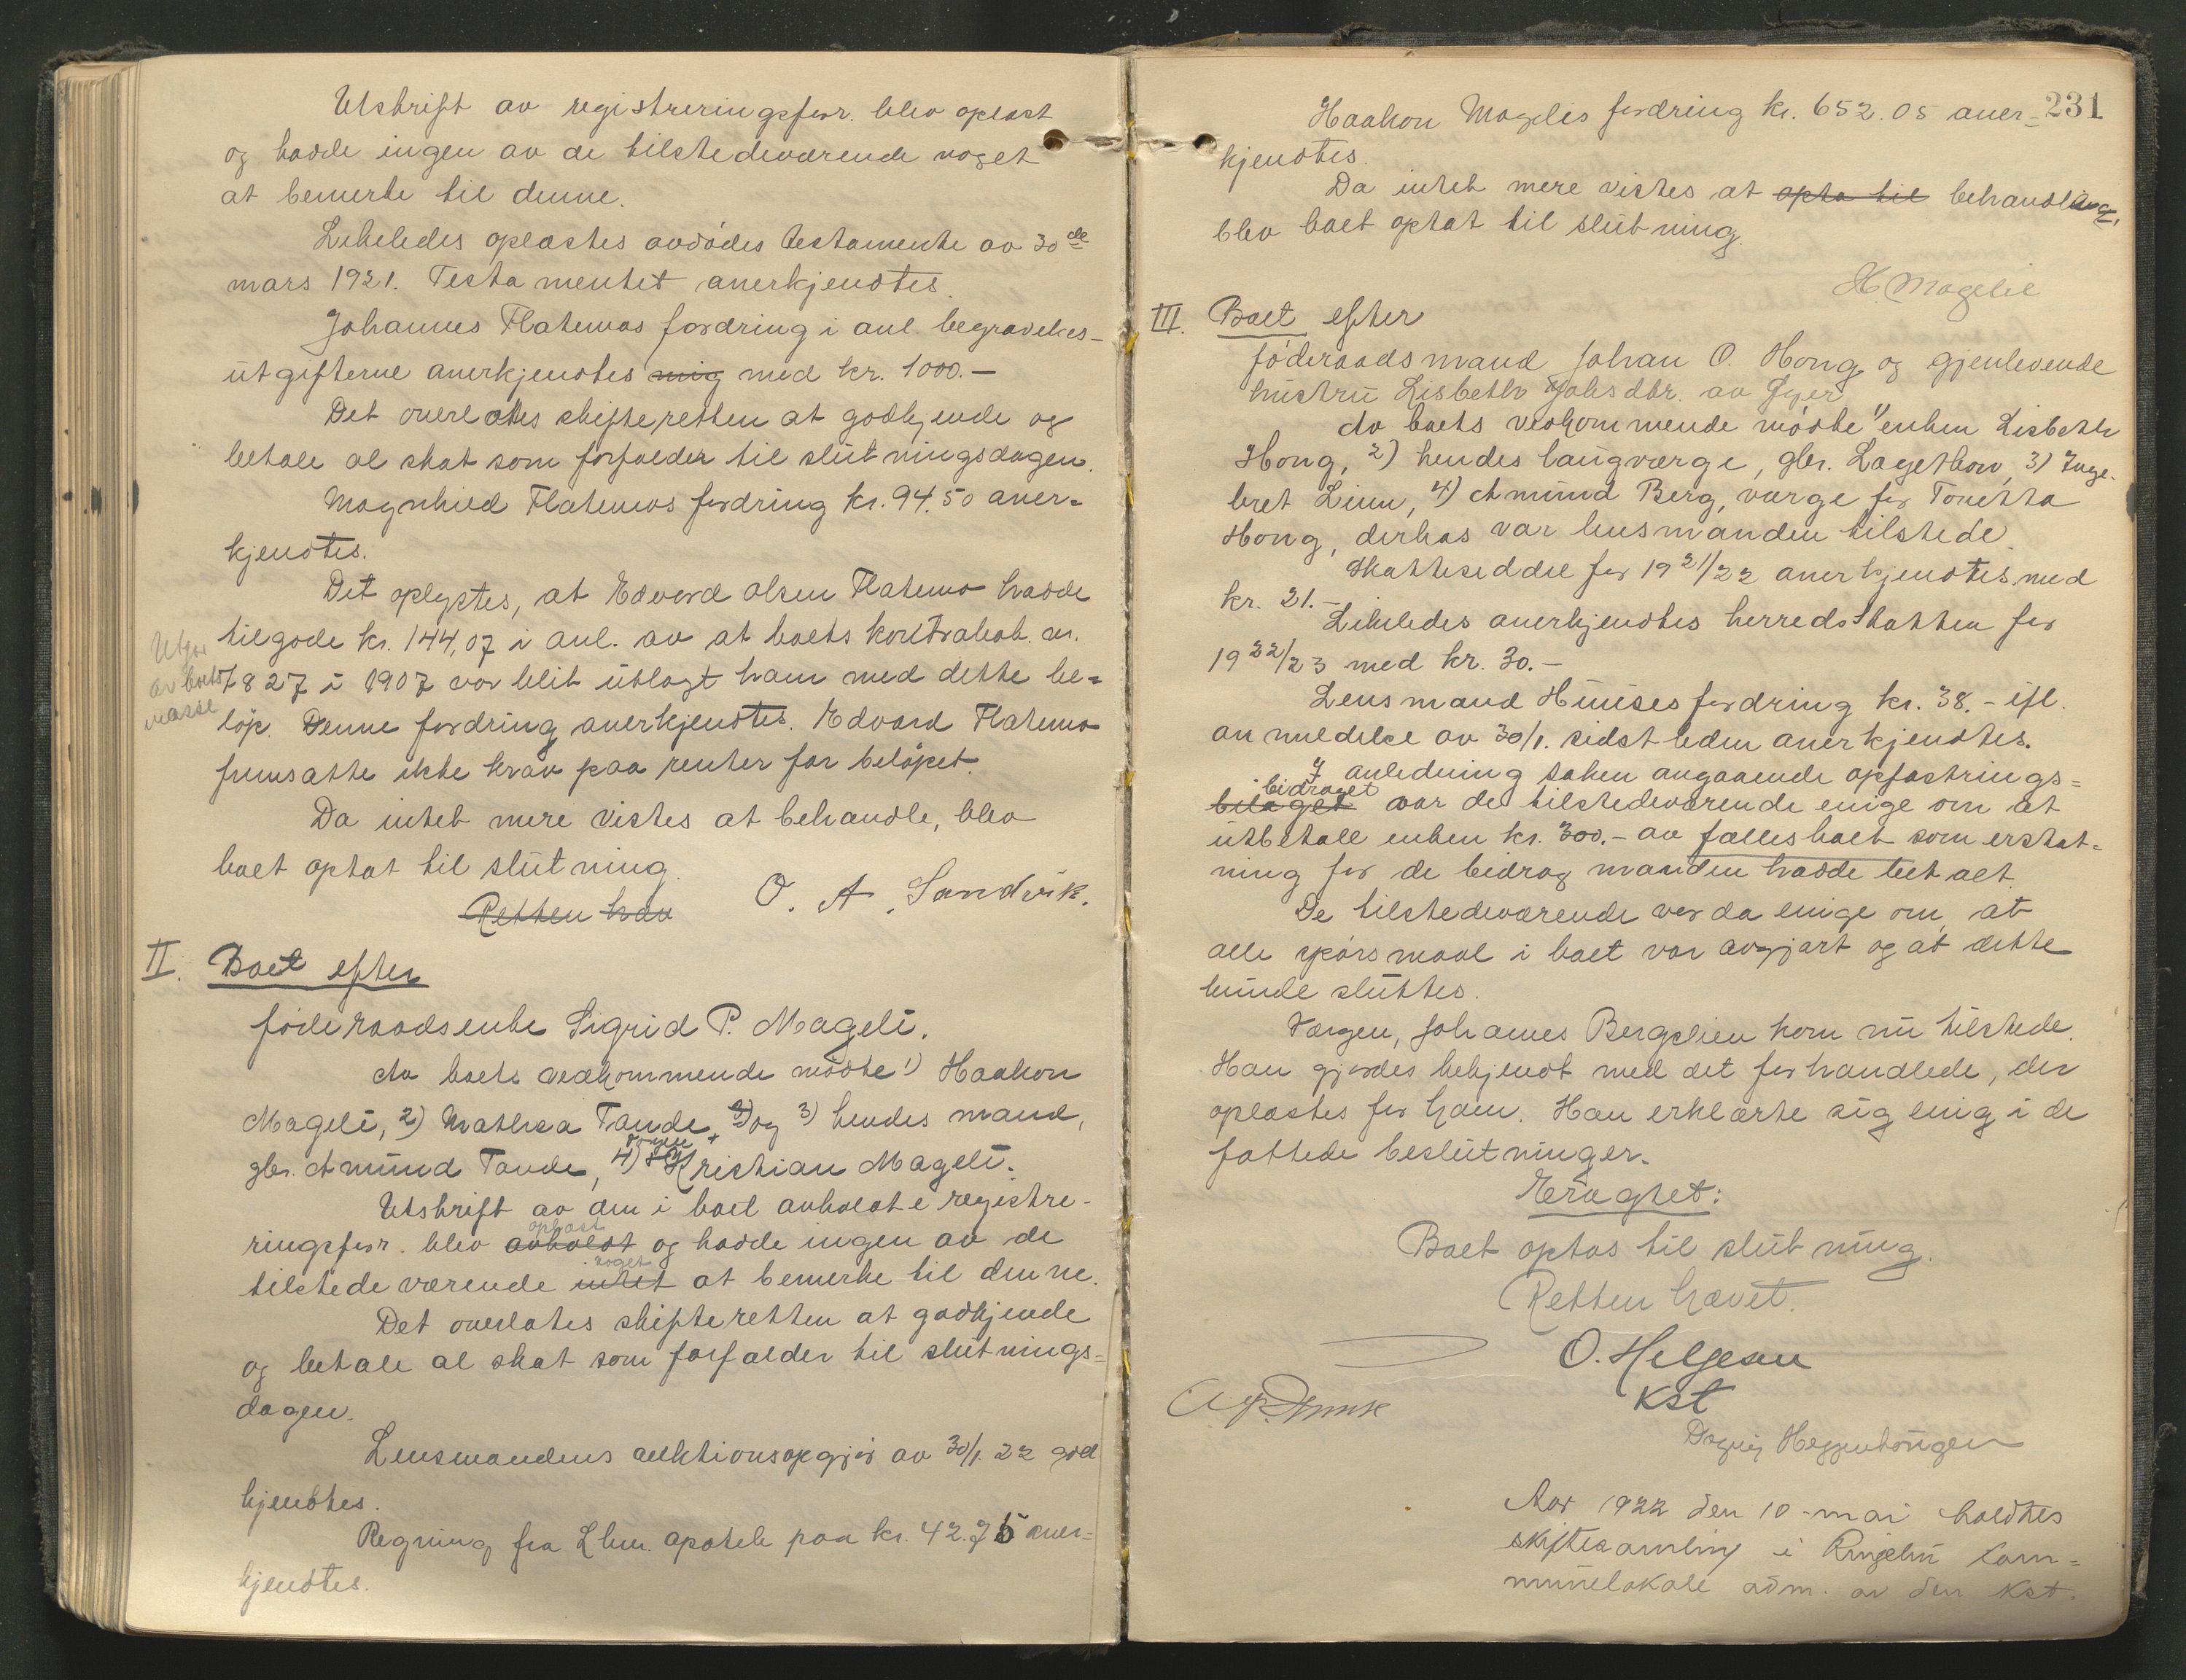 Utskrift av registreringsforr. blev oplæst
og hadde ingen av de tilstedeværende noget
at bemerke til denne.
Likeledes oplæstes avdødes testamente av 30de
mars 1921. Testamentet anerkjendtes.
Johannes Flatemos fordring i anl. begravelses-
utgifterne anerkjendtes mig med kr. 1000.-
Det overlotes skifteretten at godkjende og
betale al skat som forfalder til slutningsdagen.
Magnhild Flatemos fordring kr. 94.50 aner-
kjendtes.
Det oplystes, at Edvard Olsen Flatemo hadde
tilgode kr. 144,07 i anl. av at boets kontrabok nr.
7827 i 1907 var blit utlagt ham med dette be-
løp. Denne fordring anerkjendtes. Edvard Flatemo
fremsatte ikke krav paa renter for beløpet.
Utgor
av boets
masse
Da intet mere vistes at behandle, blev
boet optat til slutning.
Retten hæv
O. A. Sandvik.
II. Boet efter
føderaadsenke Sigrid P. Mageli.
Av boets vedkommende mødte 1) Haakon
Mageli, 2) Mathea Tande, og 3) hendes mand,
gbr. Amund Tande, 4) Kristian Mageli.
Utskrift av den i boet avholdte registre-
ringsforr. blev avholdt oplæst og hadde ingen av de
tilstedeværende intet noget at bemerke til denne.
Det overlates skifteretten at godkjende
og betale al skat som forfalder til slutnings-
dagen.
Lensmandens auktionsopgjør av 30/1. 22 god
kjendtes.
Regning fra Lhm. apotek paa kr. 42.75 aner-
kjendtes.
231
Haakon Magelis fordring kr. 652.05 aner-
kjendtes.
Da intet mere vistes at opta til behandling,
blev boet optat til slutning.
H. Magelie
III. Boet efter
føderaadsmand Johan O. Hong og gjenlevende
hustru Lisbeth Johsdtr. av Øyer
Av boets vedkommende mødte 1) enken Lisbeth
Hong, 2) hendes laugværge, gbr. Lagethon, 3) Inge-
bret Linn, 4) Amund Berg, værge for Tonetta
Hong, derhos var lensmanden tilstede.
Skatteseddel for 1921/22 anerkjendtes med
kr. 21.-
Likeledes anerkjendtes herredsskatten for
1922/23 med kr. 30.-
Lensmand Huuses fordring kr. 38.- ifl.
anmeldelse av 30/1. sidstleden anerkjendtes.
I anledning saken angaaende opfostrings-
bilaget bidraget var de tilstedeværende enige om at
utbetale enken kr. 300.- av fællesboet som erstat-
ning for de bidrag manden hadde betalt.
De tilstedeværende var da enige om at
alle spørsmaal i boet var avgjort og at dette
kunde sluttes.
Værgen, Johannes Bergslien kom nu tilstede.
Han gjordes bekjendt med det forhandlede, der
oplæstes for ham. Han erklærte sig enig i de
fattede beslutninger.
Eragtet:
Boet optas til slutning.
Retten hævet.
O. Helgesen
Kst
Dagny Heggenhougen
Aar 1922 den 10-mai holdtes
skiftesamling i Ringebu kom-
munelokale adm. av den kst.